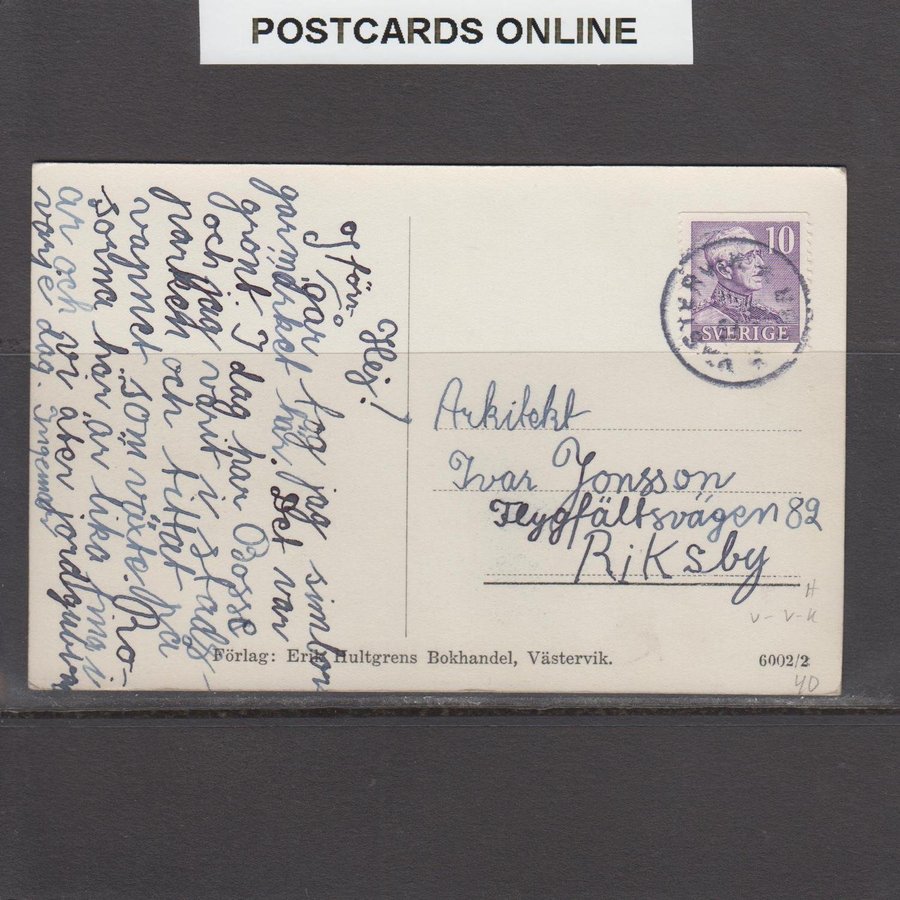 POSTCARDS ONLINE
Hej!
Igår tog jag simbor-
garmärket här. Det var
grönt. I dag har Bosse
och jag varit i stads-
parken och tittat på
vapnet som växte. Ro-
sorna här är lika fina i
år och vi äter jordgubbar
varje dag. Ingemar
10
SVERIGE
Arkitekt
Ivar Jonsson
Flygfältsvägen 82
Riksby
H
V-V-K
Förlag: Erik Hultgrens Bokhandel, Västervik.
6002/2
40